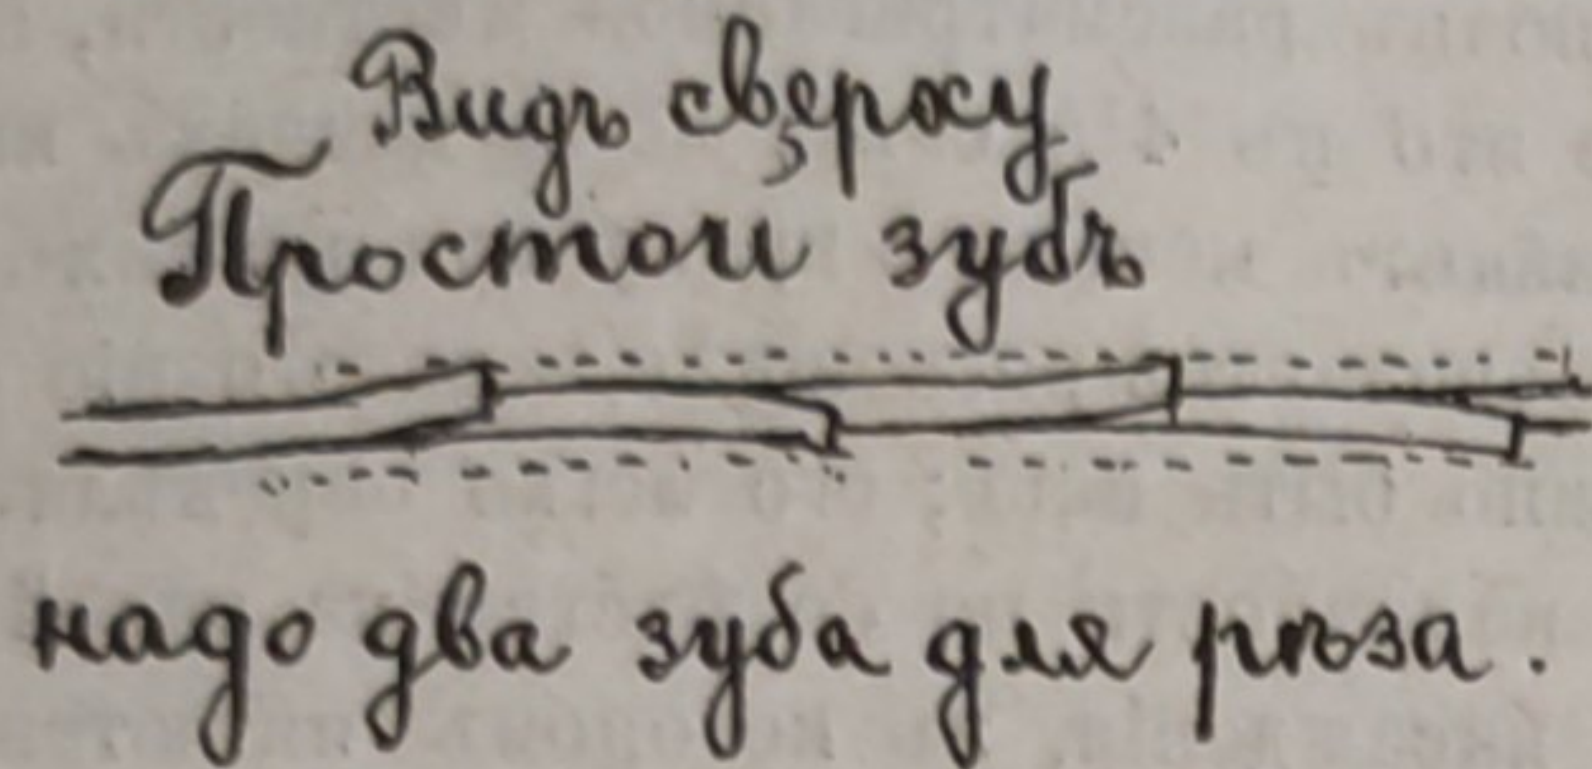 Видъ сверху
Простой зубъ
надо два зуба для рѣза.